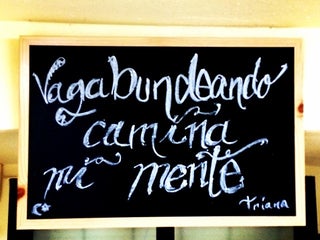 Vagabundeando
camiña
mi mente
Triana